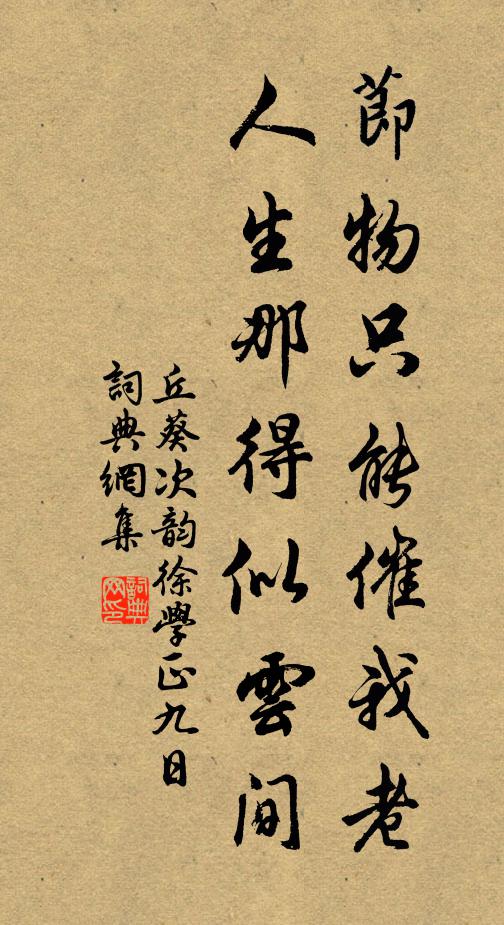 節物只能催我老
人生那得似雲間
丘葵次韵徐學正九日
詞典網集
詞典网印